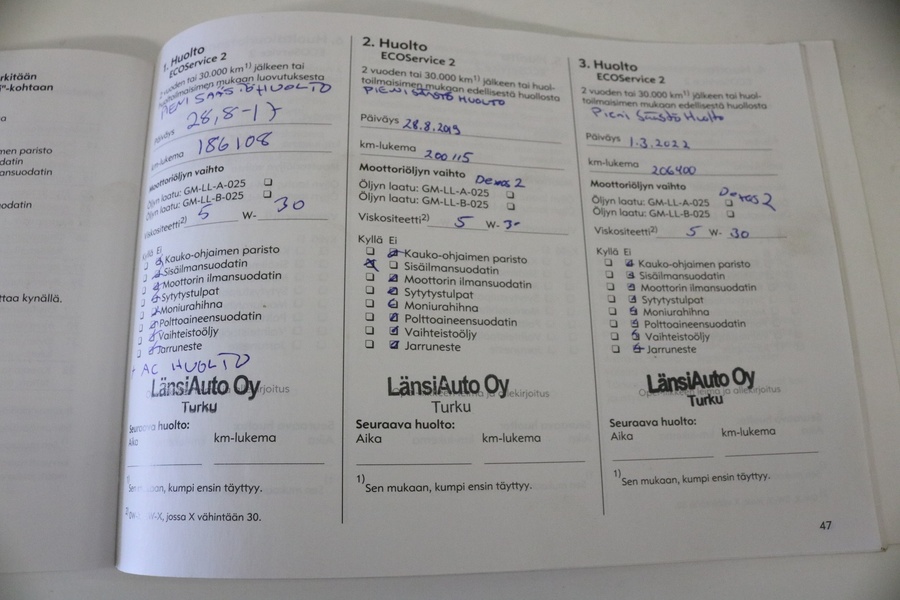 rkitään
-kohtaan
a
men paristo
datin
ansuodatin
odatin
ttaa kynällä.
1. Huolto
ECOService 2
2 vuoden tai 30.000 km1) jälkeen tai
huoltoilmaisimen mukaan luovutuksesta
PIENI SÄÄSTÖHUOLTO
Päiväys 28,8-17
km-lukema 186108
Moottoriöljyn vaihto
Öljyn laatu: GM-LL-A-025
Öljyn laatu: GM-LL-B-025
Viskositeetti2) 5 W- 30
Kyllä Ei
Kauko-ohjaimen paristo
Sisäilmansuodatin
Moottorin ilmansuodatin
Sytytystulpat
Moniurahihna
Polttoaineensuodatin
Vaihteistoöljy
Jarruneste
+ AC HUOLTO
LänsiAuto Oy
Turku
Seuraava huolto:
Aika km-lukema
1)
Sen mukaan, kumpi ensin täyttyy.
2) W-X, jossa X vähintään 30.
2. Huolto
ECOService 2
2 vuoden tai 30.000 km1) jälkeen tai huol-
toilmaisimen mukaan edellisestä huollosta
PIENI SÄÄSTÖ HUOLTO
Päiväys 28.8.2019
km-lukema 200115
Moottoriöljyn vaihto Dexos 2
Öljyn laatu: GM-LL-A-025
Öljyn laatu: GM-LL-B-025
Viskositeetti2) 5 W- 30
Kyllä Ei
Kauko-ohjaimen paristo
Sisäilmansuodatin
Moottorin ilmansuodatin
Sytytystulpat
Moniurahihna
Polttoaineensuodatin
Vaihteistoöljy
Jarruneste
LänsiAuto Oy
Turku
Seuraava huolto:
Aika km-lukema
1)
Sen mukaan, kumpi ensin täyttyy.
3. Huolto
ECOService 2
2 vuoden tai 30.000 km1) jälkeen tai huol-
toilmaisimen mukaan edellisestä huollosta
Pieni Säästö Huolto
Päiväys 1.3.2022
km-lukema 206400
Moottoriöljyn vaihto
Dexos 2
Öljyn laatu: GM-LL-A-025
Öljyn laatu: GM-LL-B-025
Viskositeetti2) 5 W- 30
Kyllä Ei
Kauko-ohjaimen paristo
Sisäilmansuodatin
Moottorin ilmansuodatin
Sytytystulpat
Moniurahihna
Polttoaineensuodatin
Vaihteistoöljy
Jarruneste
LänsiAuto Oy
Turku
Seuraava huolto:
Aika km-lukema
1)
Sen mukaan, kumpi ensin täyttyy.
47